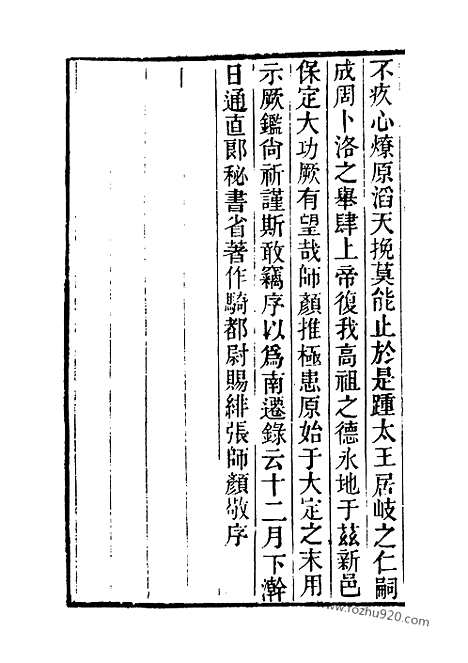 不疚心燎原滔天挽莫能止於是踵太王居岐之仁嗣
成周卜洛之舉肆上帝復我高祖之德永地于茲新邑
保定大功厥有望哉師顏推極恚原始于大定之末用
示厥鑑尙祈謹斯敢竊序以爲南遷錄云十二月下澣
日通直郎秘書省著作騎都尉賜緋張師顏敬序
www.fozhu920.com